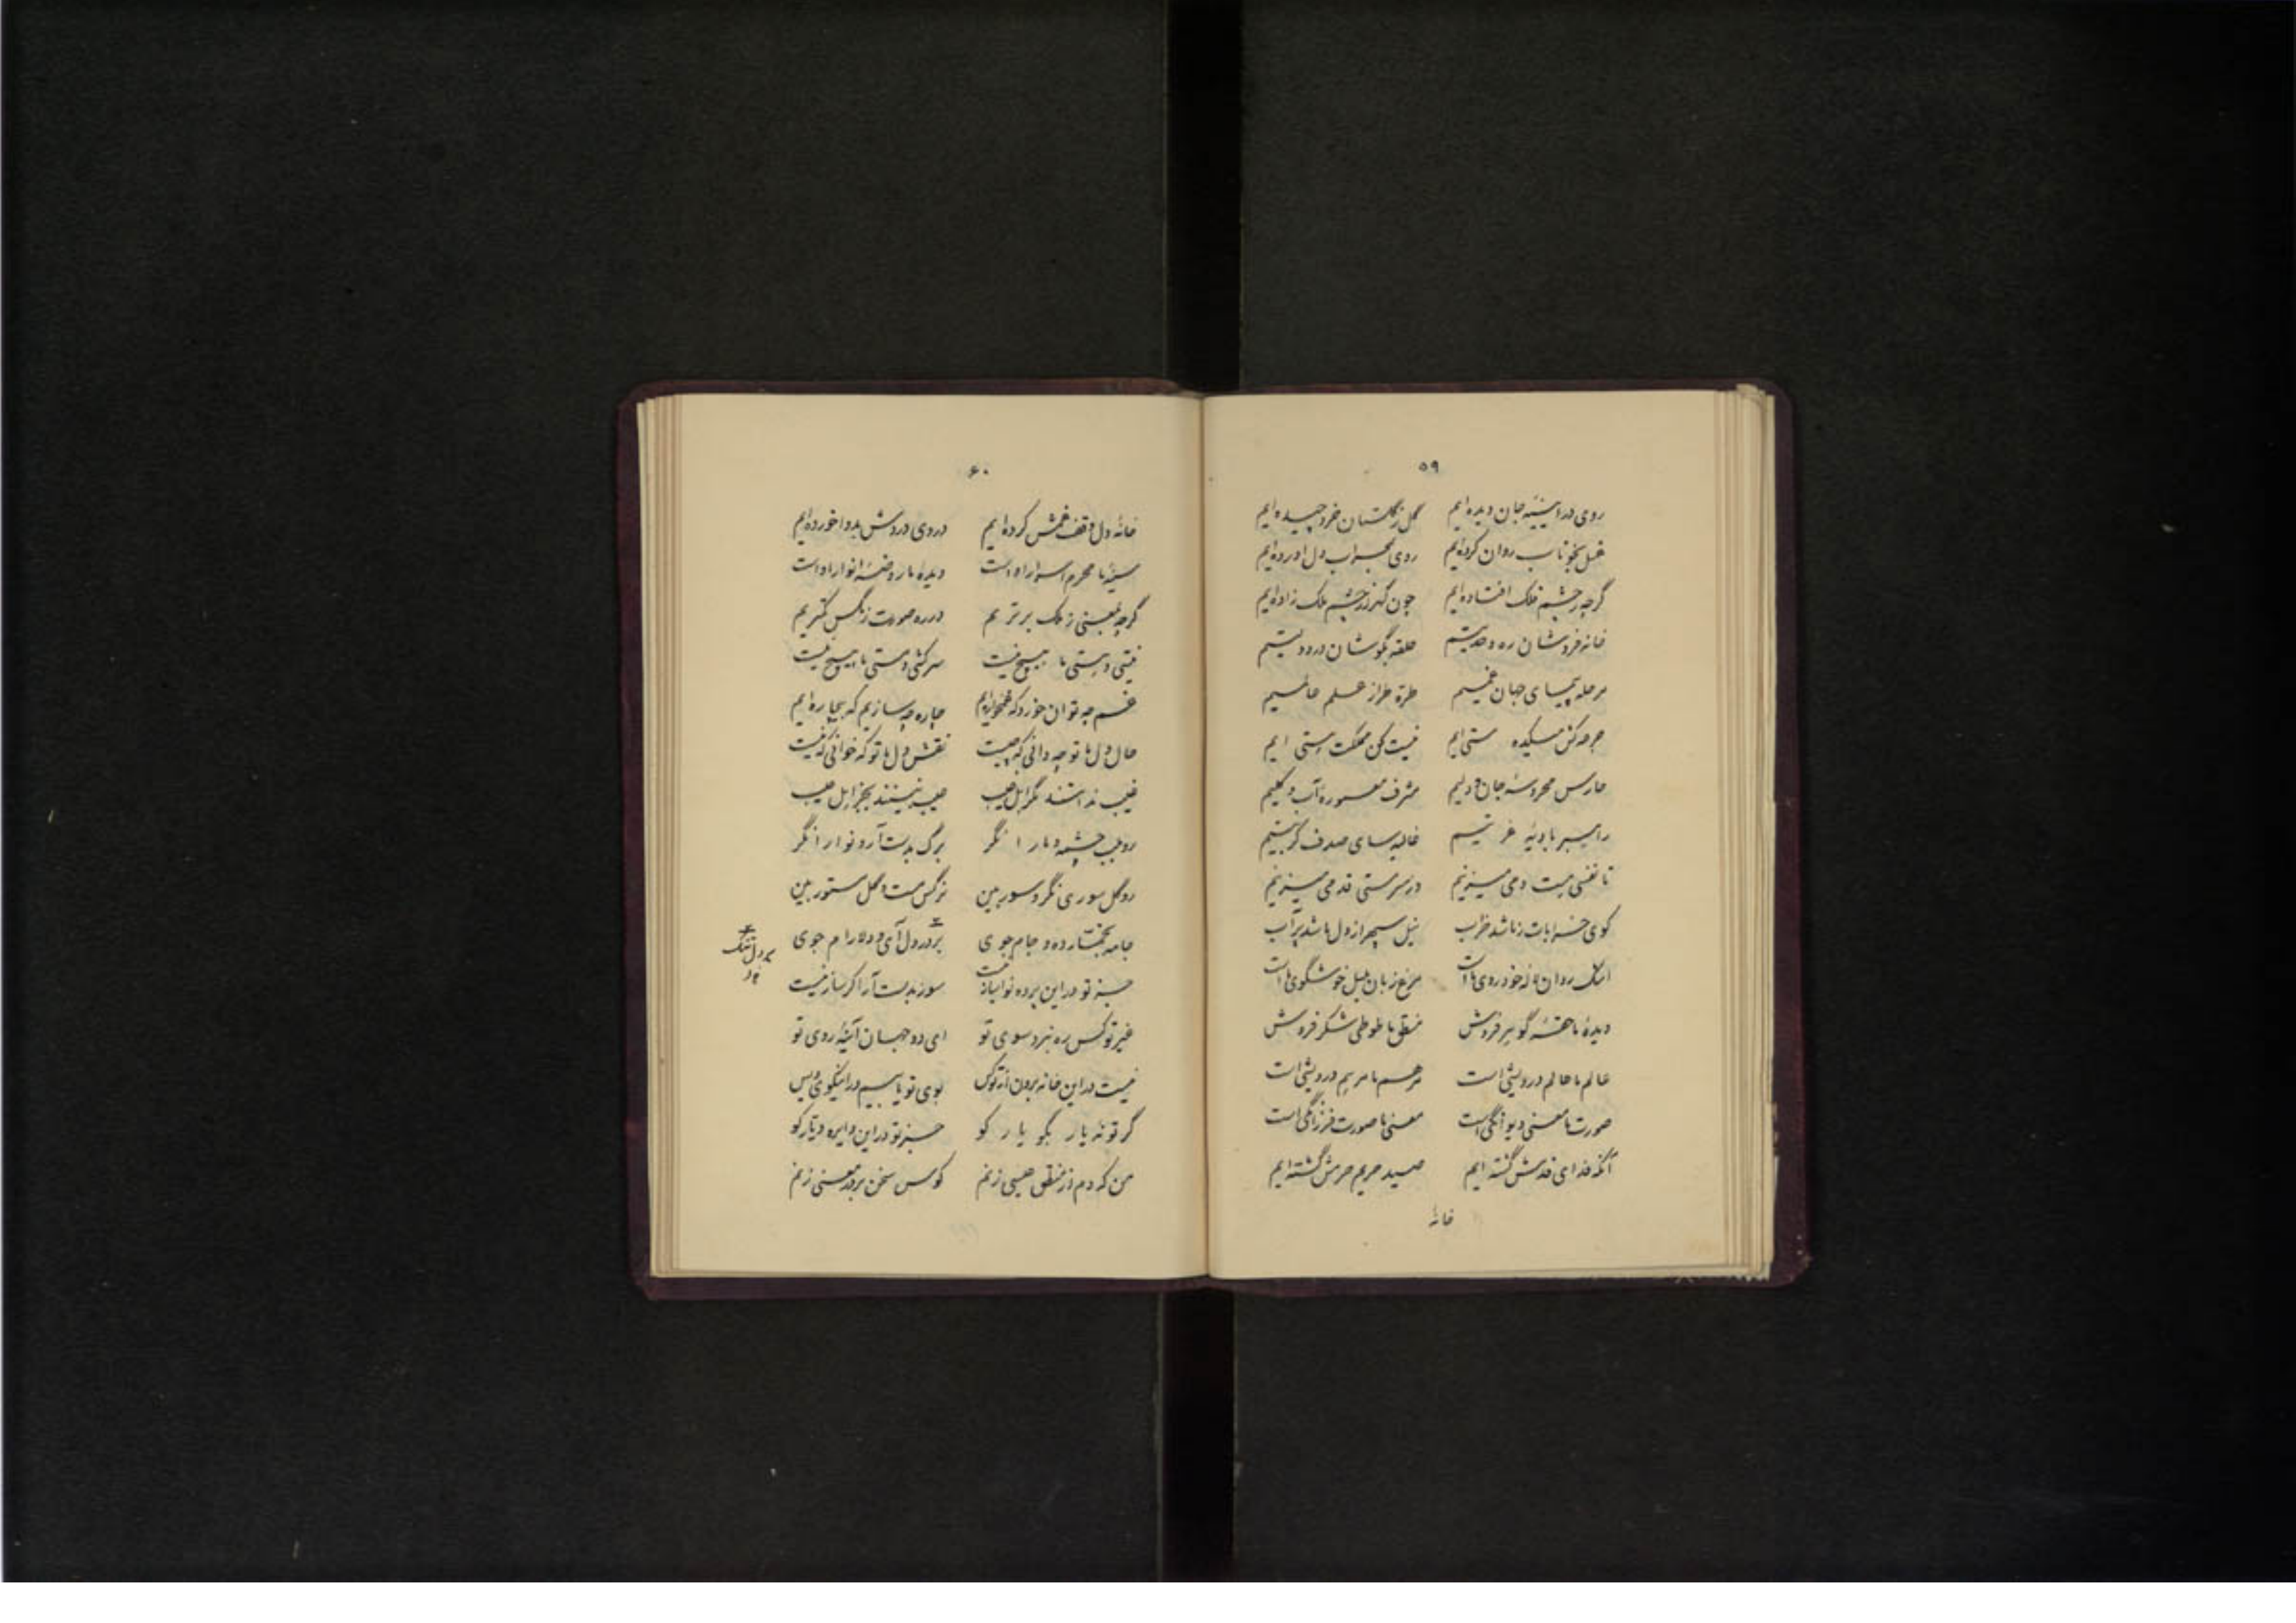 ۵۹
روی در آیینهٔ جان دیده‌ایم گل ز گلستان خرد چیده‌ایم
غسل بخوناب روان کرده‌ایم روی بمحراب دل آورده‌ایم
گرچه ز چشم فلک افتاده‌ایم چون گهر از چشم ملک زاده‌ایم
خانه فروشان ره وحدتیم حلقه بگوشان در دولتیم
مرحله پیمای جهان غمیم طره طراز علم عالمیم
جرعه کش میکده مستی ایم نیست کن مملکت هستی ایم
حارس محروسهٔ جان و دلیم مشرف معمورهٔ آب و گلیم
راهبر بادیهٔ غربتیم غالیه سای صدف کربتیم
تا نفسی هست دمی میزنیم در سر مستی قدمی میزنیم
کوی خرابات ز ما شد خراب نیل سپهر از دل ما شد پر آب
اشک روان لاله خودروی ماست مرغ زبان بلبل خوشگوی ماست
دیدهٔ ما حقهٔ گوهر فروش منطق ما طوطی شکر فروش
عالم ما عالم درویشی است مرهم ما مرهم درویشی است
صورت ما معنی دیوانگی است معنی ما صورت فرزانگی است
آنکه فدای قدمش گشته ایم صید حریم حرمش گشته ایم
خانهٔ
۶۰
خانهٔ دل وقف غمش کرده‌ایم دردی دردش بدوا خورده‌ایم
سینهٔ ما محرم اسرار اوست دیدهٔ ما روضهٔ انوار اوست
گرچه بمعنی ز ملک برتریم در ره صورت ز مگس کمتریم
نیستی و هستی ما هیچ نیست سرکشی و مستی ما هیچ نیست
غم چه توان خورد که غمخواره‌ایم چاره چه سازیم که بیچاره‌ایم
حال دل ما تو چه دانی که چیست نقش دل ما تو که خوانی که نیست
غیب ندانند مگر اهل غیب عیب نبینند بجز اهل عیب
رو بلب چشمه و ما را نگر برگ بدست آر و نوا را نگر
رو گل سوری نگر و سور بین نرگس مست و گل مستور بین
جامه بخمار ده و جام جوی بر در دل آی و دلارام جوی
بر دل تنگ
جز تو در این پرده نواساز نیست سوز بدست آر اگر ساز نیست
غیر تو کس ره نبرد سوی تو ای دو جهان آینهٔ روی تو
نیست در این خانه برون از تو کس بوی تو یابیم در این کوی و بس
گر تو نهٔ یار بگو یار کو جز تو در این دایره دیار کو
من که دم از منطق عیسی زنم کوس سخن بر در معنی زنم